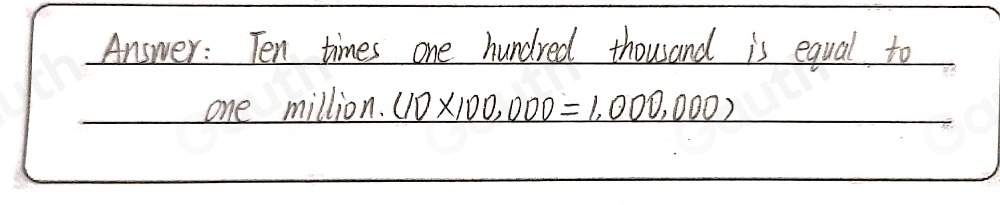 Answer: Ten times one hundred thousand is equal to
one million. (10×100,000=1,000,000)